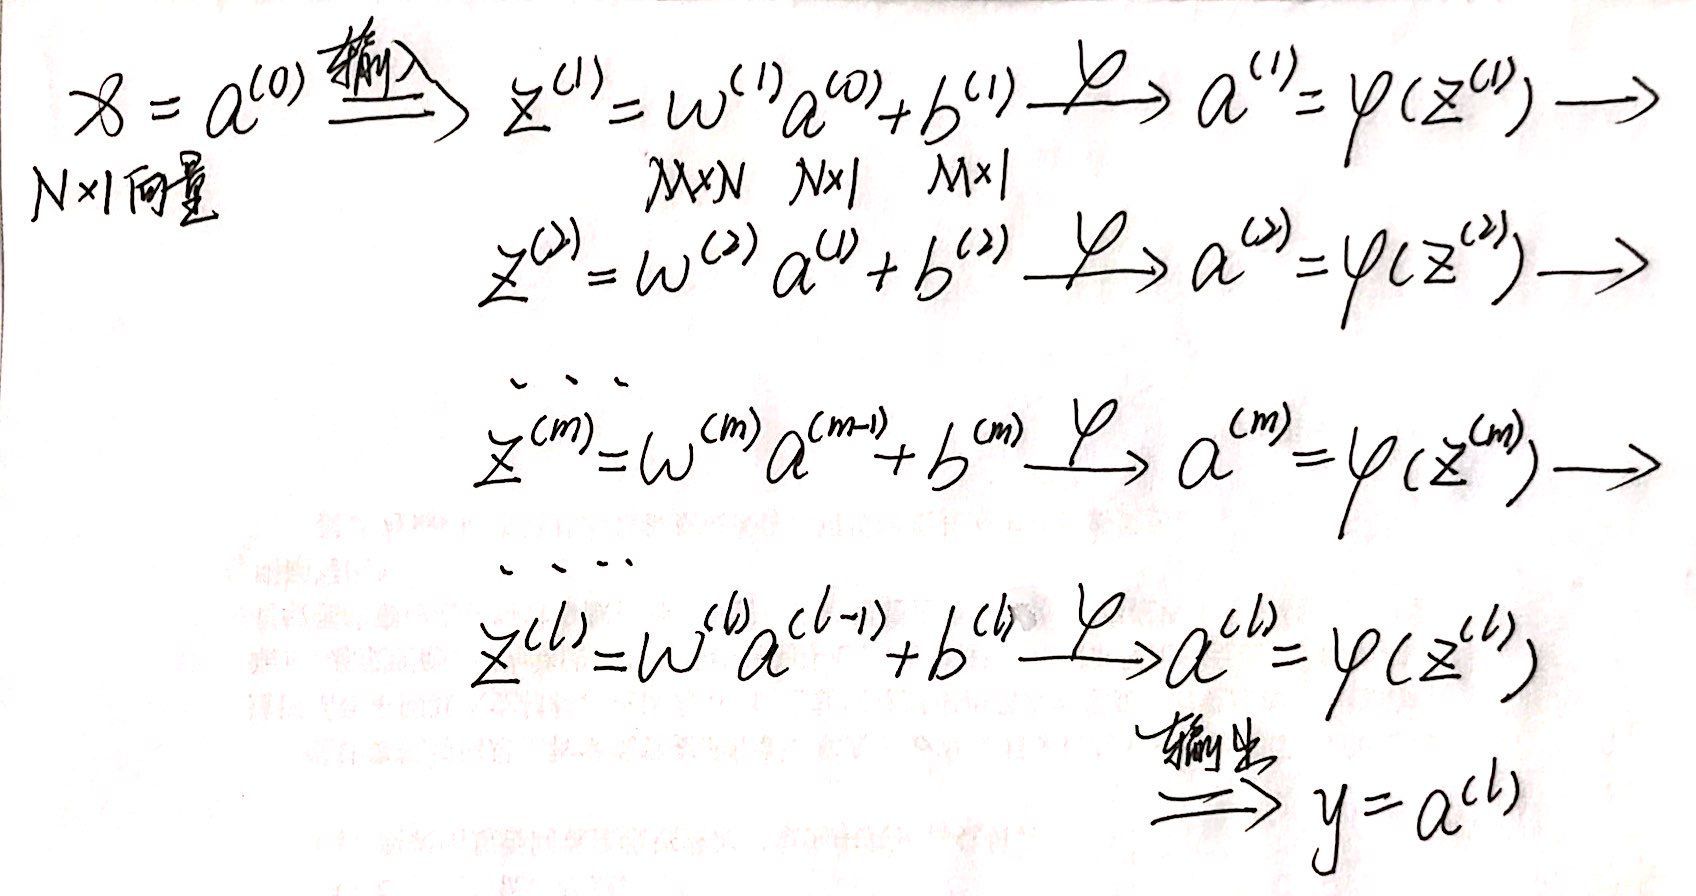 x = a^(0) 输入⟹ z^(1) = w^(1) a^(0) + b^(1) —φ→ a^(1) = φ(z^(1)) →
N×1向量 M×N N×1 M×1
z^(2) = w^(2) a^(1) + b^(2) —φ→ a^(2) = φ(z^(2)) →
...
z^(m) = w^(m) a^(m-1) + b^(m) —φ→ a^(m) = φ(z^(m)) →
....
z^(l) = w^(l) a^(l-1) + b^(l) —φ→ a^(l) = φ(z^(l))
输出⟹ y = a^(l)